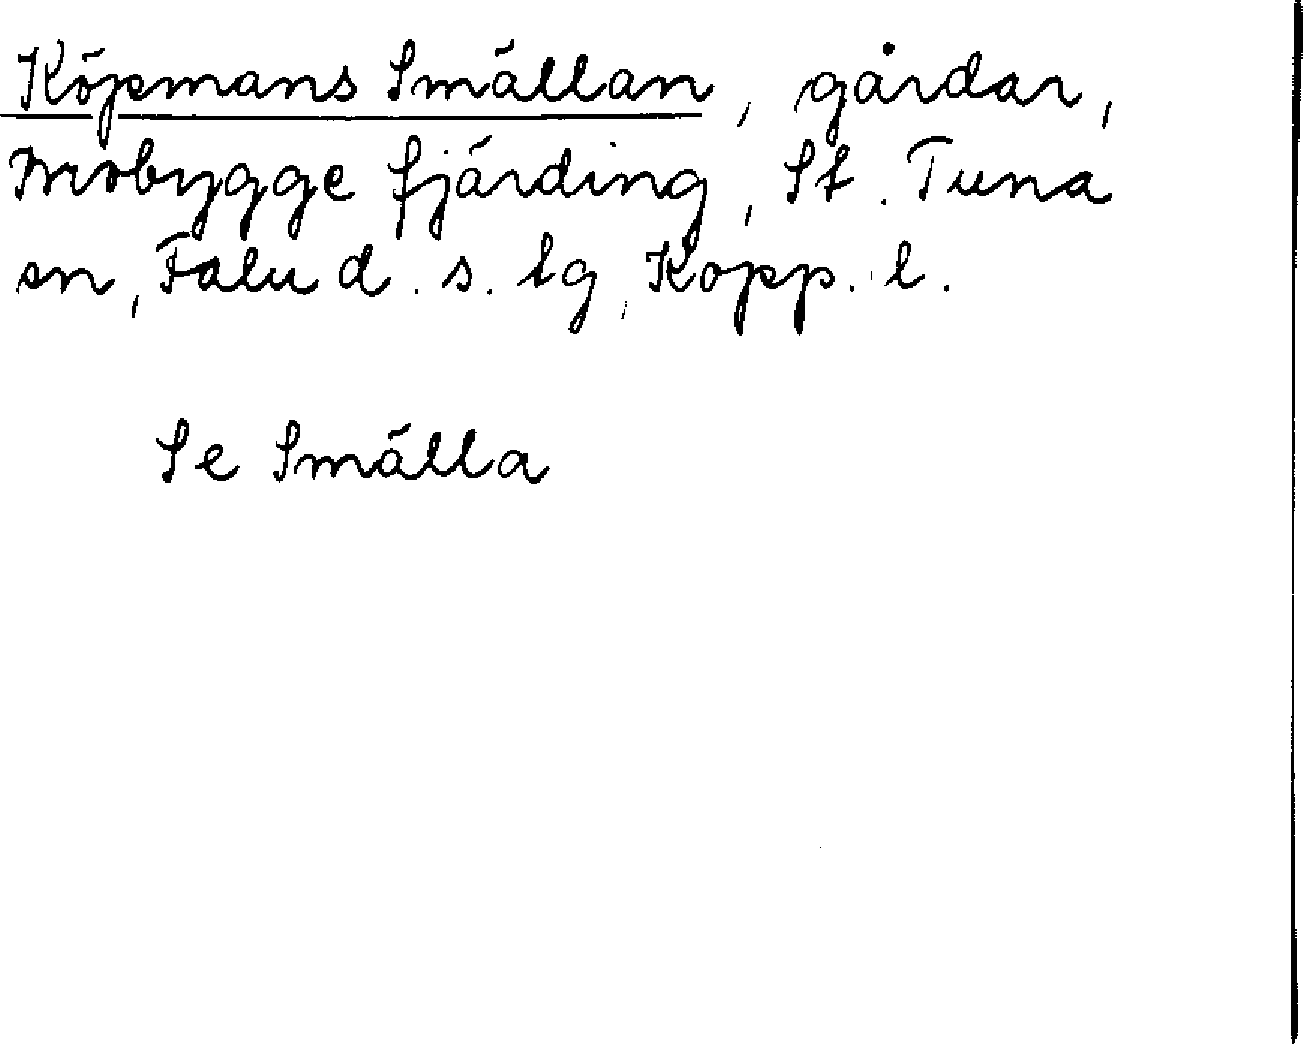 Köpmans Smällan, gårdar,
Mobygge fjärding, St. Tuna
sn, Falu d. s. tg, Kopp. l.
Se Smälla